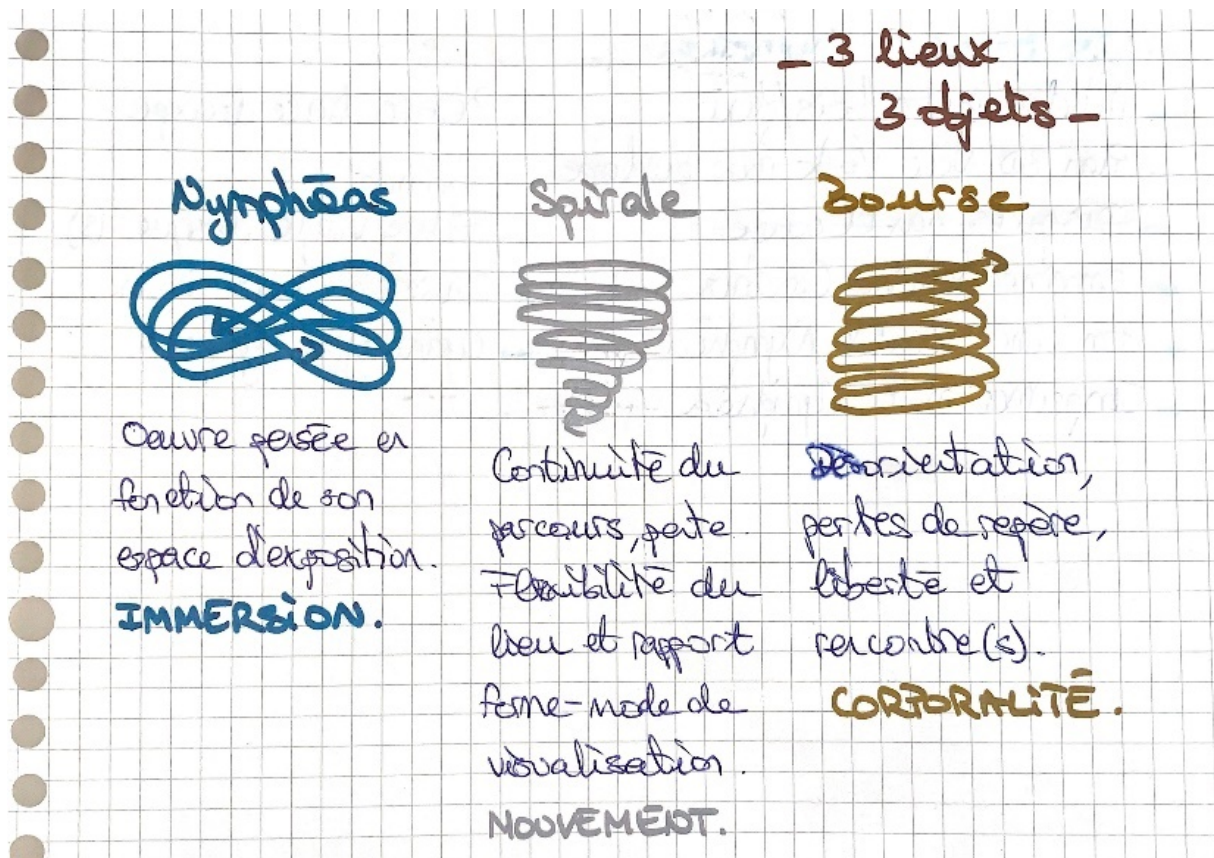 - 3 lieux
3 objets -
Nymphéas
Oeuvre pensée en
fonction de son
espace d'exposition.
IMMERSION.
Spirale
Continuité du
parcours, pente
Flexibilité du
lieu et rapport
forme-mode de
visualisation.
MOUVEMENT.
Bourse
Désorientation,
pertes de repère,
liberté et
rencontre(s).
CORPORALITÉ.